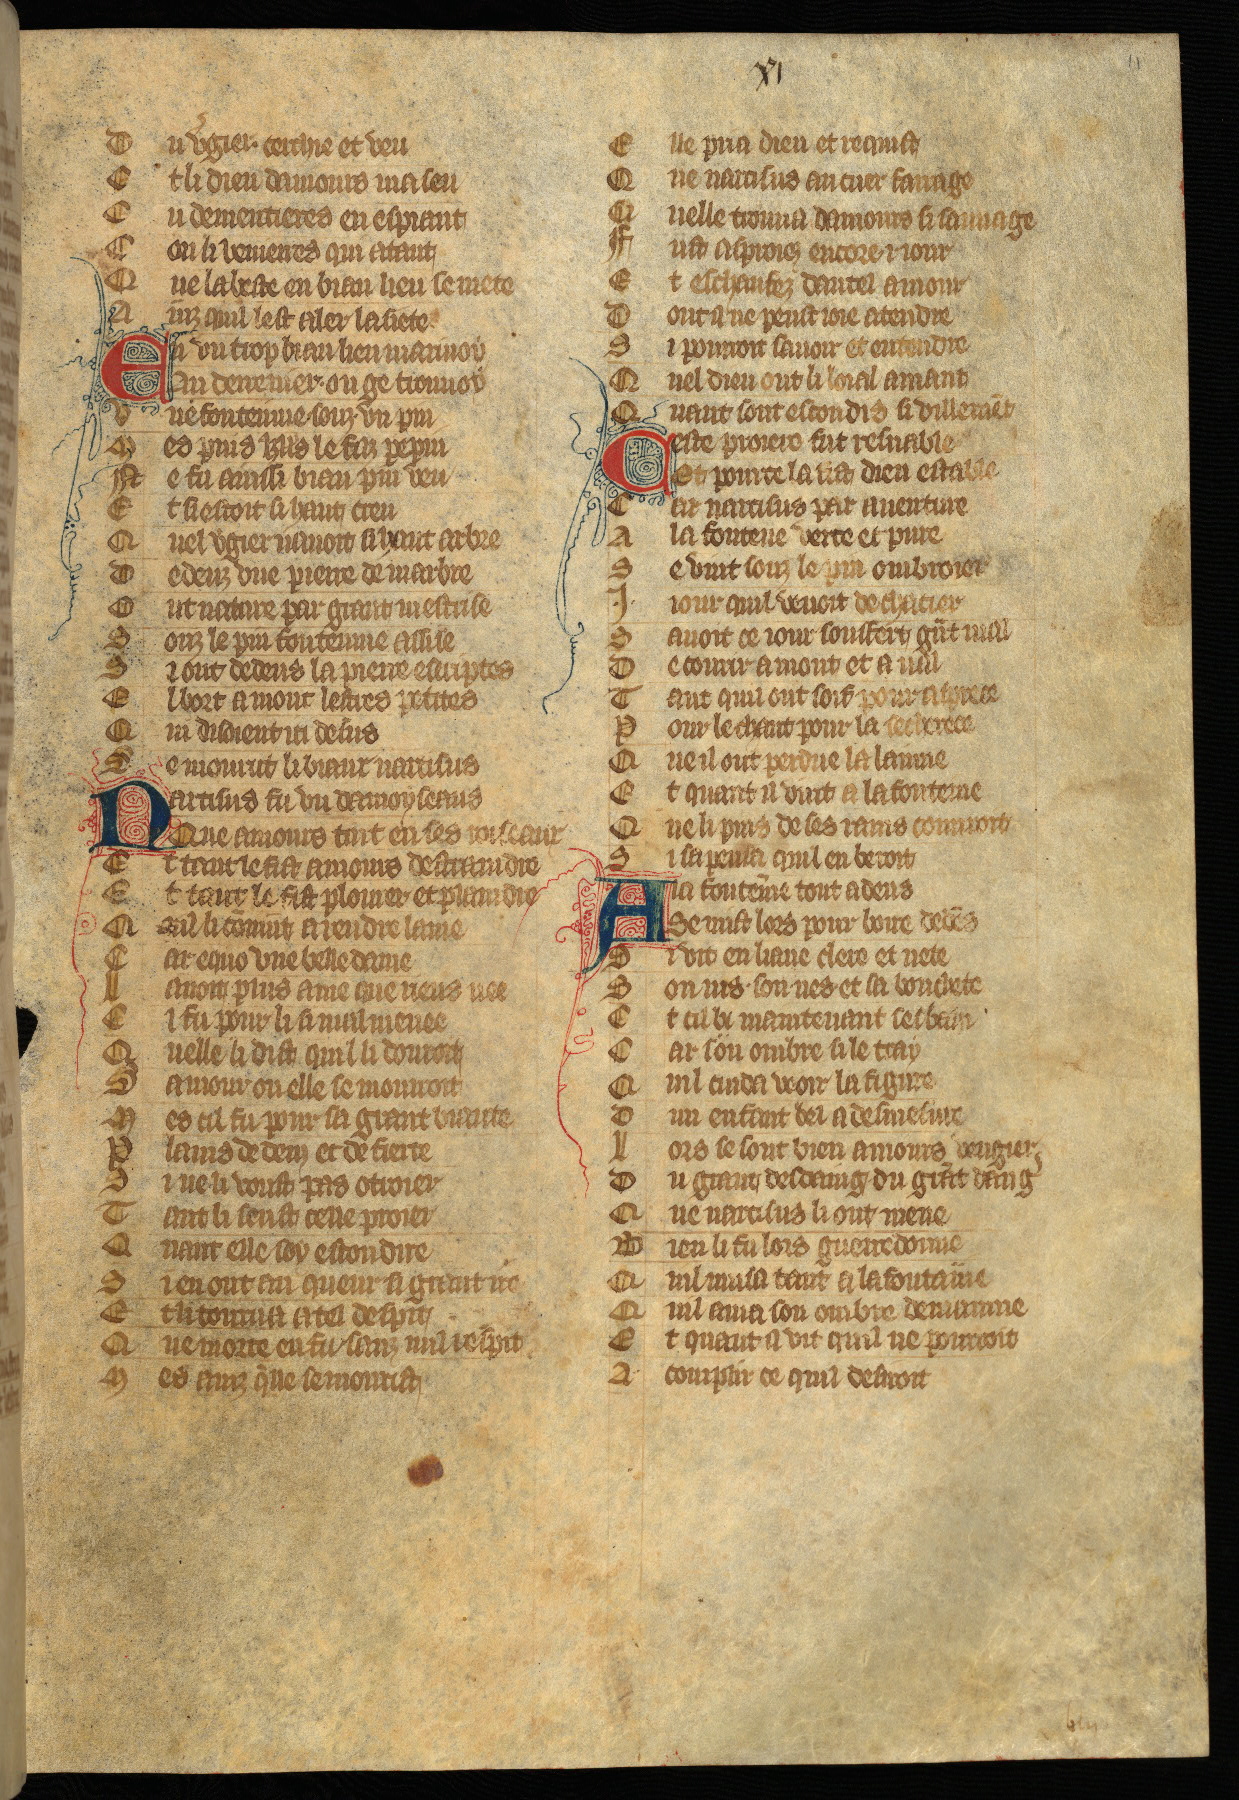 XI
11
Du vgier cerchie et veu
Et li dieu damours ma seu
Endementieres en espiant
Con li venierres qui atant
Que la beste en biau lieu se mete
A inz quil lest aler la fiete
En vn trop biau lieu marivoy
Au derrenier ou ge trouvoy
Vne fontenne souz vn pin
Mes puis le filz pepin
Ne fu ainssi biau pin veu
Et si estoit si haut creu
Quel vgier navoit si haut arbre
Dedenz vne pierre de marbre
Out nature par grant mestrise
Souz le pin fontenne assise
Si out dedens la pierre escriptes
El bort amont lestres petites
Qui disoient ici desus
Se mourut li biaux narcisus
Narcisus fu vn damoyseaus
Que amours tint en ses roiseaux
Et tant le fist amours destraindre
Et tant le fist plourer et plaindre
Quil li comint a rendre lame
Car equo vne belle dame
Lavoit plus ame que riens nee
Et fu pour li si mal menee
Quelle li dist quil li donroit
Samour ou elle se mourroit
Mes cil fu pour sa grant biaute
Plains de denz et de fierte
Si ne li voust pas otroier
Tant li seust celle proier
Quant elle soy escondire
Si en out au queur si grant ire
Et li tourna a tel despit
Que morte en fu sanz nul respit
Mes ainz qlle se mourist
Elle pria dieu et requist
Que narcisus au cuer farrage
Quelle trouva damours si sauvage
Fust asproiez encore i iour
Et eschaufez dautel amour
Dont il ne peust ioie atendre
Si pourroit savoir et entendre
Quel dieu ont li loial amant
Quant sont escondis si villement
Ceste proiere fut resnable
Et pource la fist dieu estable
Car narcisus par auenture
A la fontene verte et pure
Se vint souz le pin ombroier
I iour quil venoit de chacier
Savoit ce iour souffert gnt mal
De courir amont et aual
Tant quil out soif pour laprece
Pour le chaut pour la secherece
Que il out perdue lalainne
Et quant il vint a la fontenne
Que li pins de ses rains couvroit
Si sa pensa quil en bevroit
A la fontenne tout adens
Se mist lors pour boire dedens
Si vit en liaue clere et nete
Son vis son nes et sa bouchete
Et cil bi maintenant sesbahi
Car son ombre si le tray
Quil cuida veoir la figure
Dun enfant bel a desmesure
Lors se sout bien amours vengier
Du grant desdaing du grant dang
Que narcisus li out mene
Bien li fu lors guerredonne
Quil musa tant a la fontainne
Quil ama son ombre demainne
Et quant il vit quil ne pourroit
Acomplir ce quil desiroit